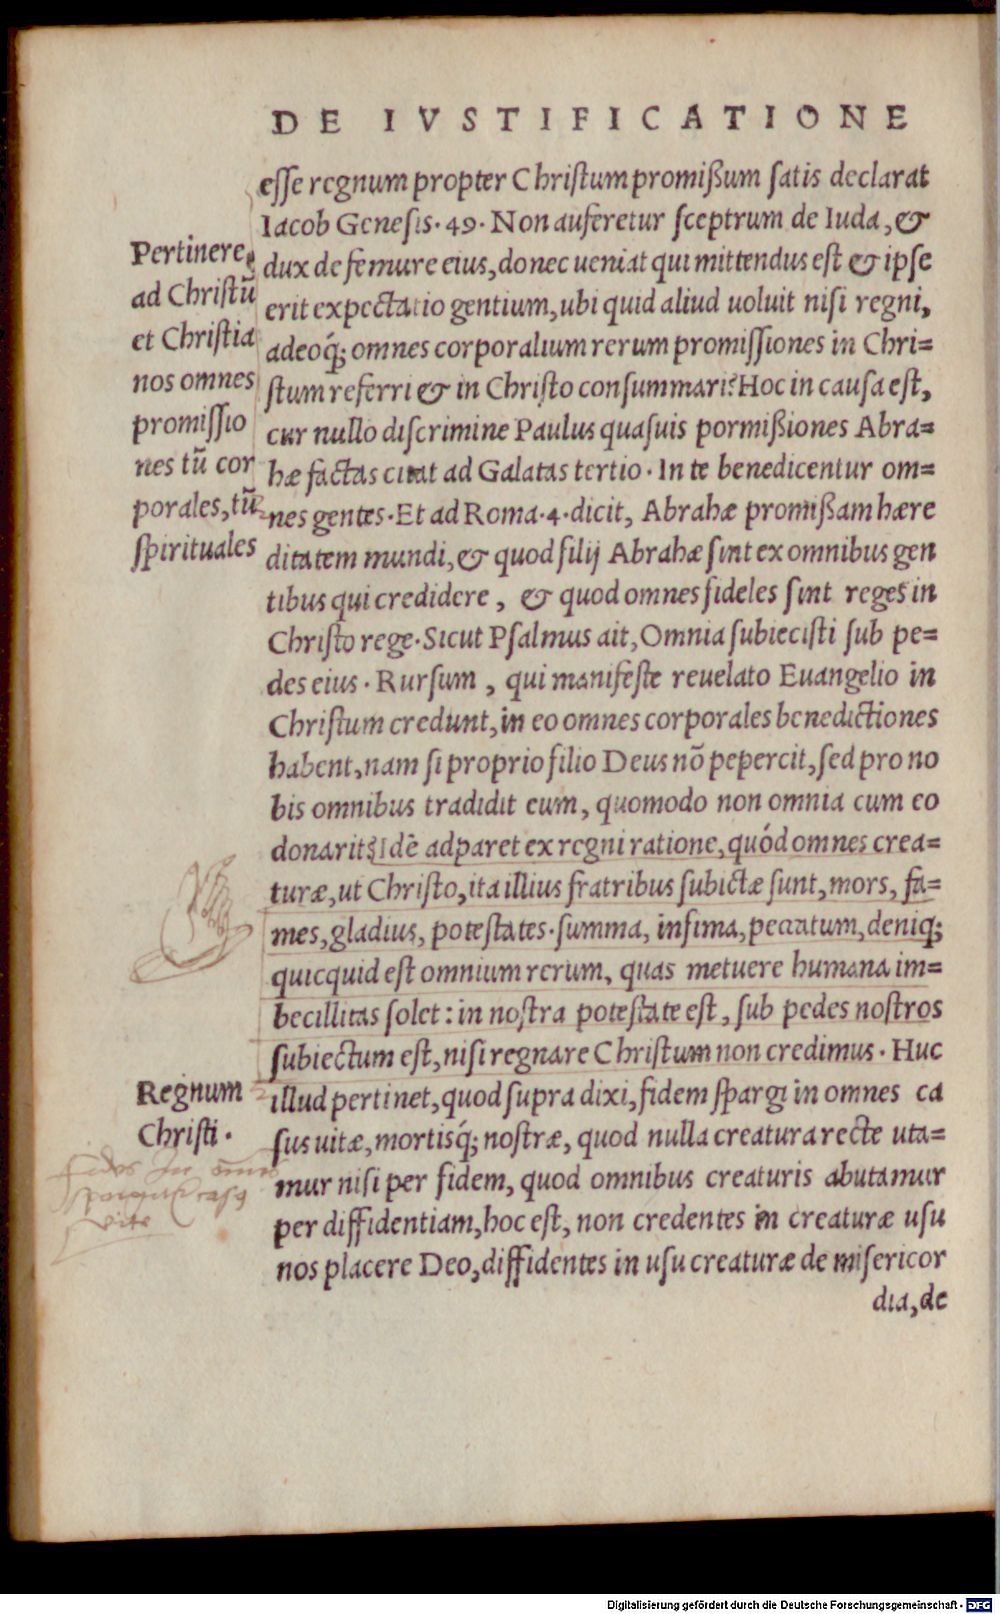 DE IVSTIFICATIONE
esse regnum propter Christum promißum satis declarat
Iacob Genesis. 49. Non auferetur sceptrum de Iuda, &
dux de femure eius, donec ueniat qui mittendus est & ipse
erit expectatio gentium, ubi quid aliud uoluit nisi regni,
adeoq́; omnes corporalium rerum promissiones in Chri=
stum referri & in Christo consummari? Hoc in causa est,
cur nullo discrimine Paulus quasuis pormißiones Abra=
hæ factas citat ad Galatas tertio. In te benedicentur om=
nes gentes. Et ad Roma. 4. dicit, Abrahæ promißam hære
ditatem mundi, & quod filij Abrahæ sint ex omnibus gen
tibus qui credidere, & quod omnes fideles sint reges in
Christo rege. Sicut Psalmus ait, Omnia subiecisti sub pe=
des eius. Rursum, qui manifeste reuelato Euangelio in
Christum credunt, in eo omnes corporales benedictiones
habent, nam si proprio filio Deus nõ pepercit, sed pro no
bis omnibus tradidit eum, quomodo non omnia cum eo
donarit? Idẽ adparet ex regni ratione, quód omnes crea=
turæ, ut Christo, ita illius fratribus subictæ sunt, mors, fa=
mes, gladius, potestates. summa, infima, peccatum, deniq;
quicquid est omnium rerum, quas metuere humana im=
becillitas solet: in nostra potestate est, sub pedes nostros
subiectum est, nisi regnare Christum non credimus. Huc
illud pertinet, quod supra dixi, fidem spargi in omnes ca
sus uitæ, mortisq́; nostræ, quod nulla creatura recte uta=
mur nisi per fidem, quod omnibus creaturis abutamur
per diffidentiam, hoc est, non credentes in creaturæ usu
nos placere Deo, diffidentes in usu creaturæ de misericor
dia, de
Pertinere
ad Christũ
et Christia
nos omnes
promissio
nes tũ cor
porales, tũ
spirituales
Regnum
Christi.
fides in omnes
vite
Digitalisierung gefördert durch die Deutsche Forschungsgemeinschaft - DFG